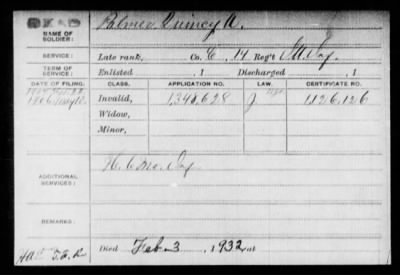 DEAD Palmer Quincy A.
NAME OF SOLDIER:
SERVICE: Late rank, Co. C, 14 Reg't Ill. Inf.
TERM OF SERVICE: Enlisted , 1 Discharged , 1
DATE OF FILING. CLASS. APPLICATION NO. LAW. CERTIFICATE NO.
1904
1906 Invalid, 1,348,628 J 1,126,126
Widow,
Minor,
ADDITIONAL SERVICES: H. 6 Mo. Inf.
REMARKS:
Died Feb - 3, 1932, at